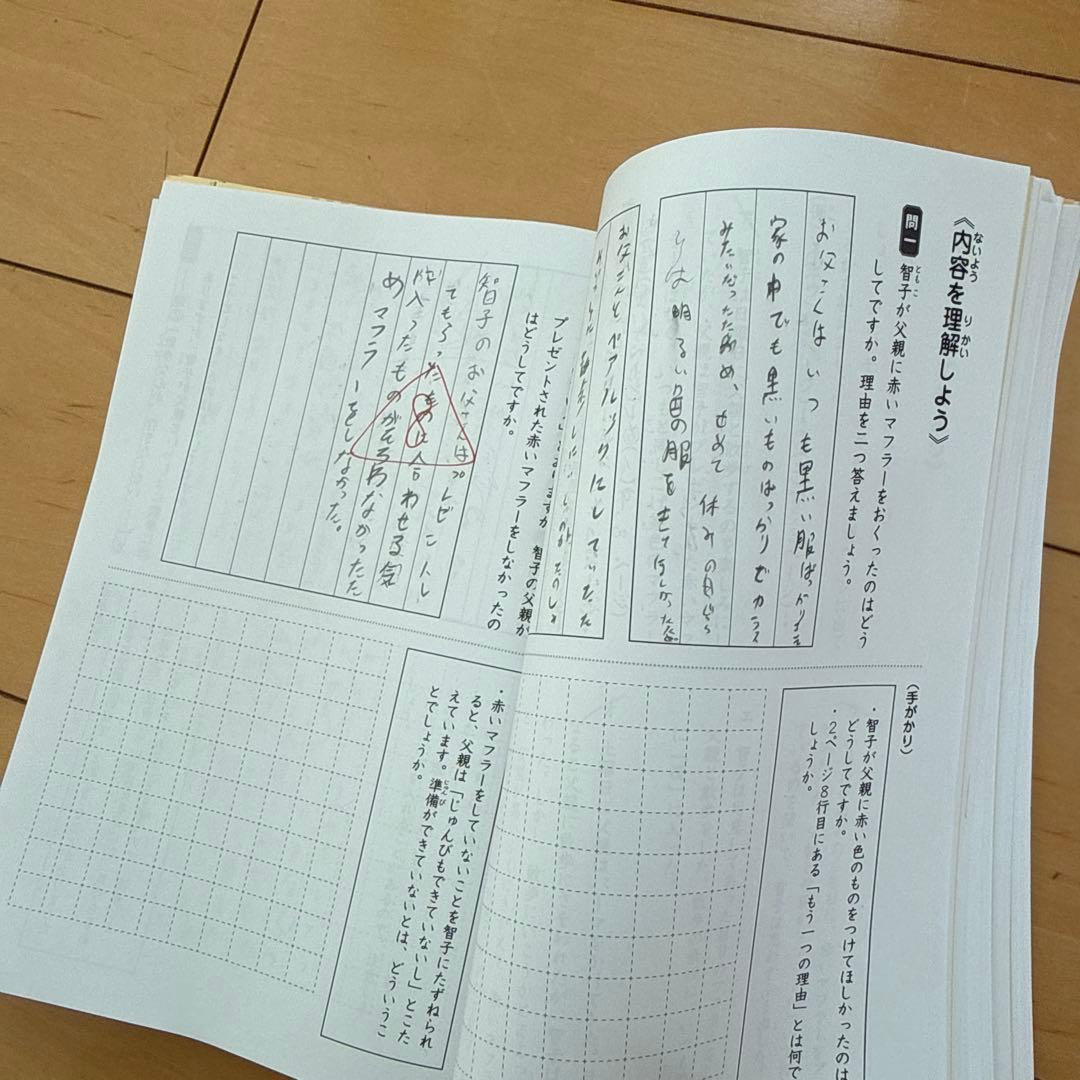 《内容を理解しよう》
ないよう りかい
問一
智子が父親に赤いマフラーをおくったのはどう
ともこ
してですか。理由を二つ答えましょう。
お父さんはいつも黒い服ばっかり
家の中でも黒いものばっかりでカラス
みたいなため、せめて休みの日ぐら
いは明るい色の服をきてほしかった
プレゼントされた赤いマフラーをしなかったの
はどうしてですか。
智子の父親が
智子のお父さんはプレゼントし
てもらったものに合わせる気
に入ったものがそろわなかったた
め マフラーをしなかった。
8
(手がかり)
・智子が父親に赤い色のものをつけてほしかったのは
どうしてですか。
・2ページ8行目にある「もう一つの理由」とは何で
しょうか。
・赤いマフラーをしていないことを智子にたずねられ
ると、父親は「じゅんびもできていないし」とこた
えています。準備ができていないとは、どういうこ
じゅんび
とでしょうか。